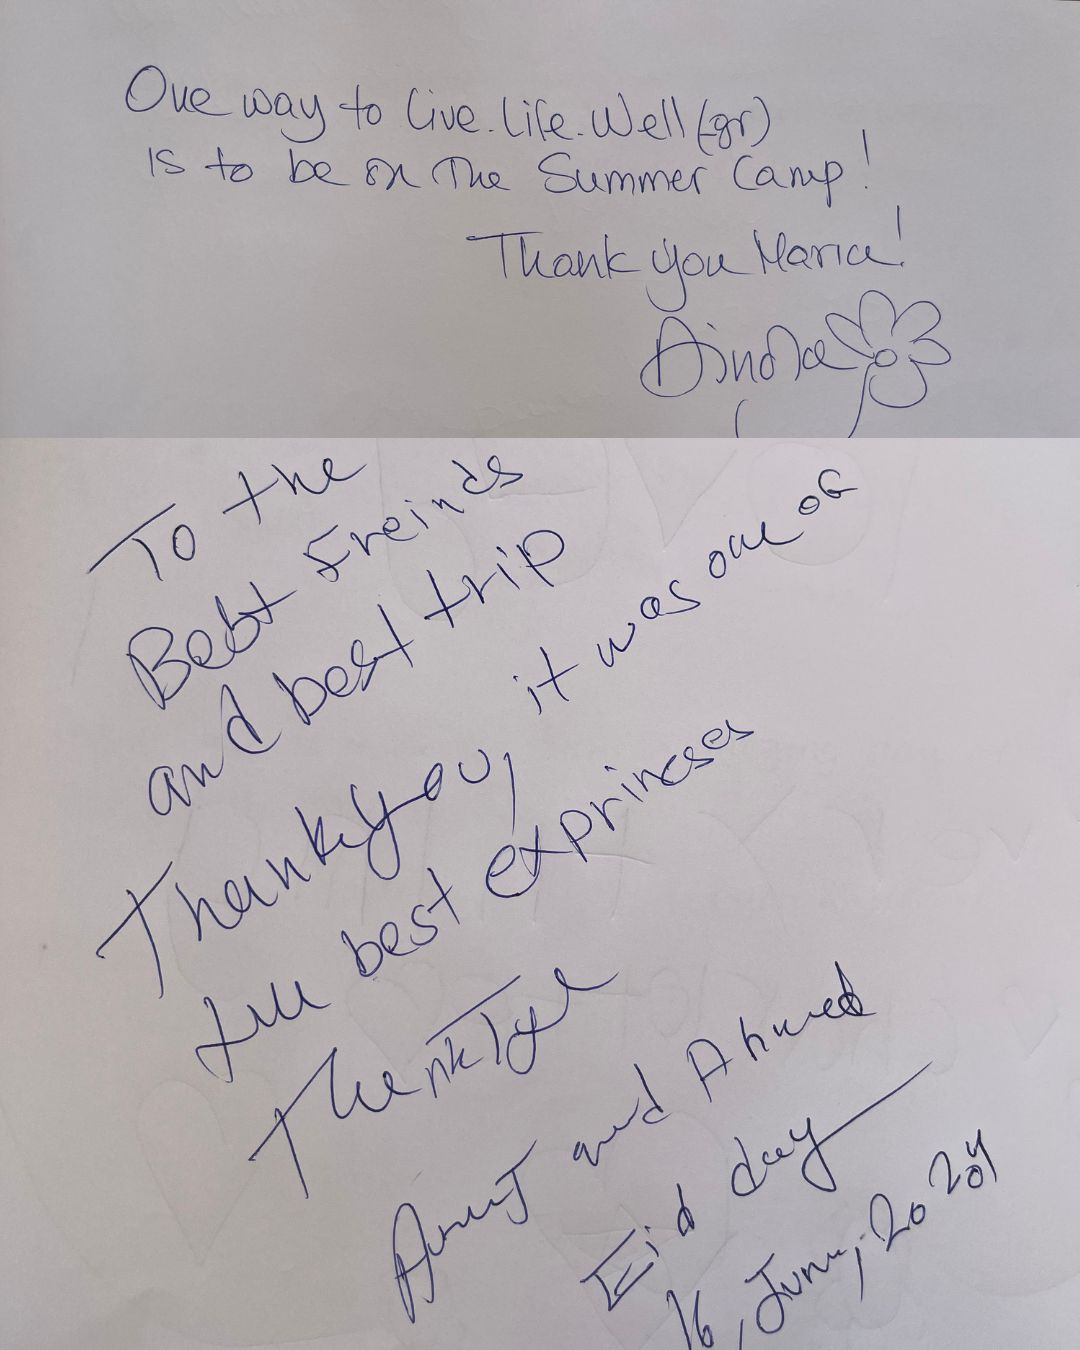 One way to Live.Life.Well(gr)
is to be on the Summer Camp!
Thank you Maria!
To the
Best Freinds
and best trip
Thank you, it was one of
the best exprinses
Thank
and Ahmed
Eid day
16, June, 2024